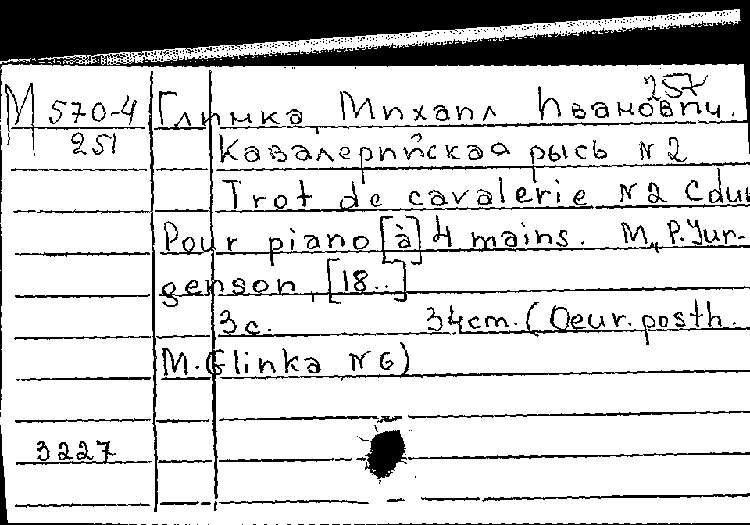 257
M 570-4 Глинка, Михаил Иванович.
251 Кавалерийская рысь N 2
Trot de cavalerie N 2 C dur
Pour piano [à] 4 mains. M., P. Jur-
genson, [18..]
3 c. 34 cm. (Oeuv. posth.
M. Glinka N 6)
3227